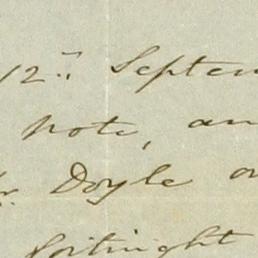 12th Septem
note, an
r. Doyle on
fortnight